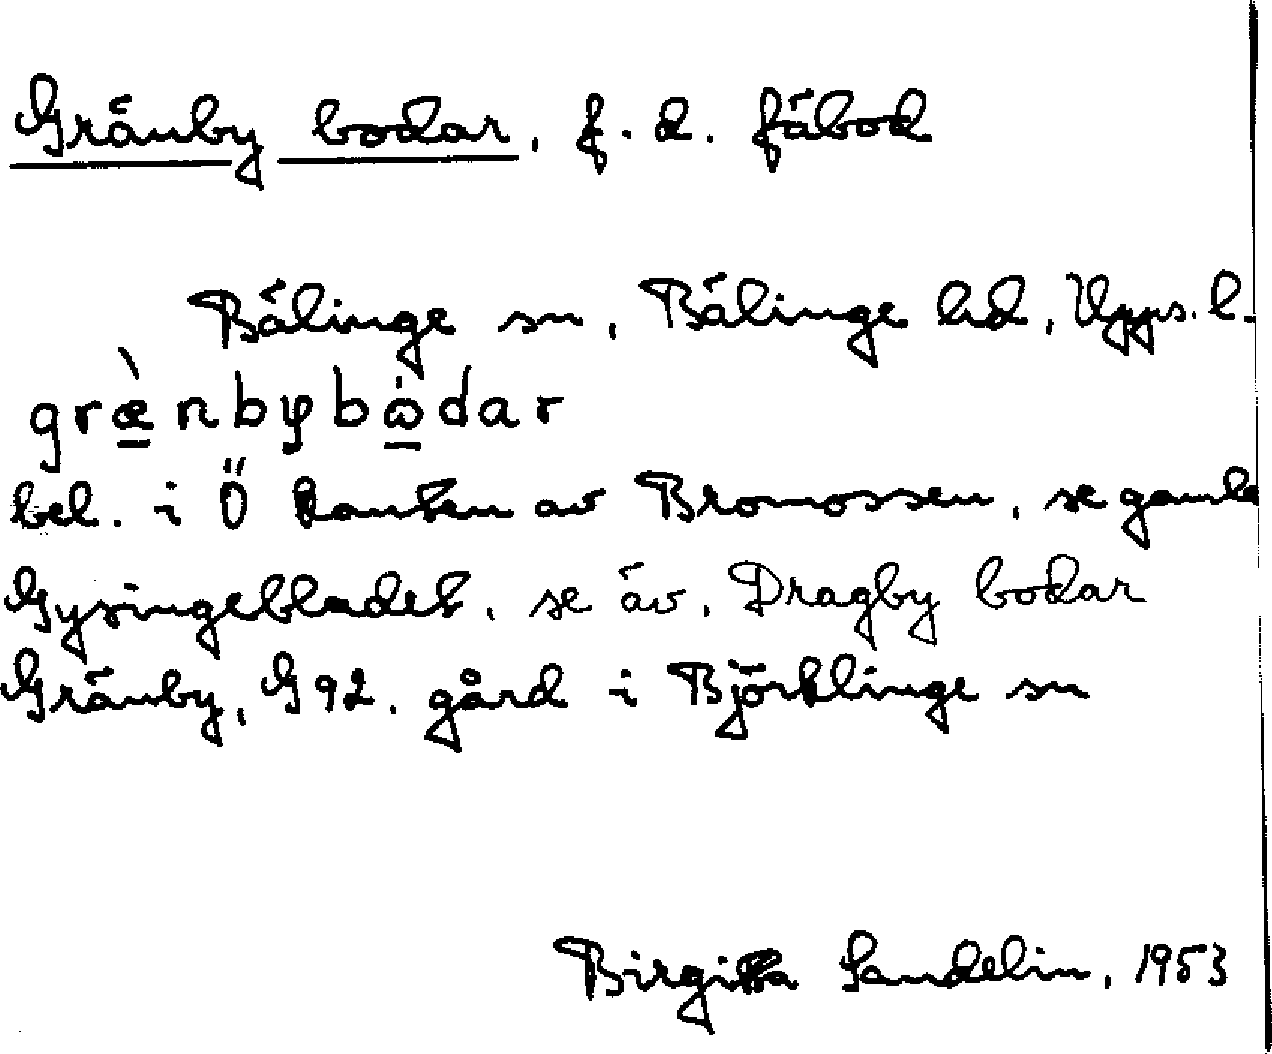 Gränby bodar, f.d. fäbod
Bälinge sn, Bälinge hd, Upps.l.
græ̀nbybω̇dar
bel. i Ö kanten av Bromossen, se gamla
Gysingebladet, se äv. Dragby bodar
Gränby, G92. gård i Björklinge sn
Birgitta Sandelin, 1953